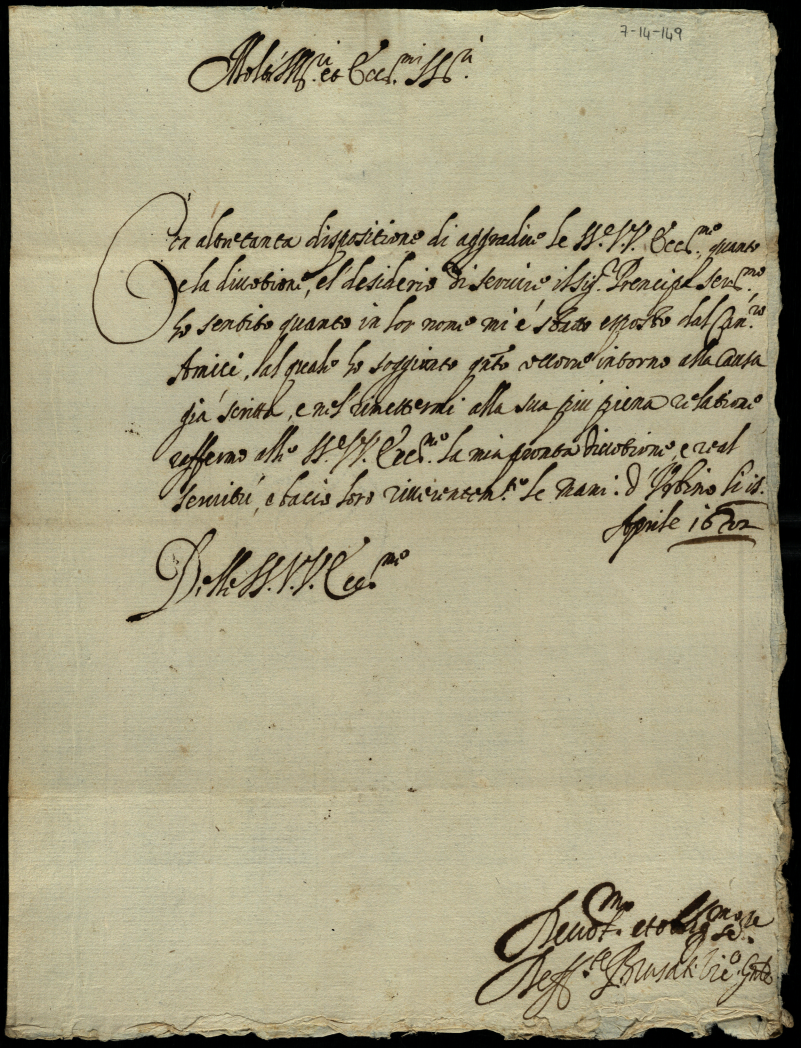 7-14-149
Molt' Ill.ri et Ecc.mi SS.ri
Con altretanta dispositione di aggradire le SS.e VV. Ecc.me quanto
è la divotione, el desiderio di servire il Sig.r Prencipe Ser.mo
ho sentito quanto in lor nome mi é stato esposto dal Can.co
Amici, dal quale ho soggionto q.nto occorre intorno alla Causa
giá scritta, e nel rimettermi alla sua piú piena relatione
raffermo alle SS.e VV. Ecc.me la mia pronta divotione, e real
servitú, e bacio loro riverentem.te le mani. d'Urbino li 18.
Aprile
Delle SS. VV. Ecc.me
Devot.mo et oblig.mo se.re